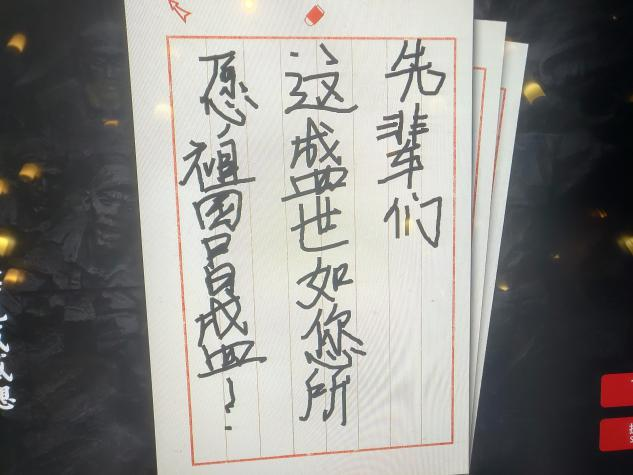 先辈们
这盛世如您所
愿，祖国昌盛！